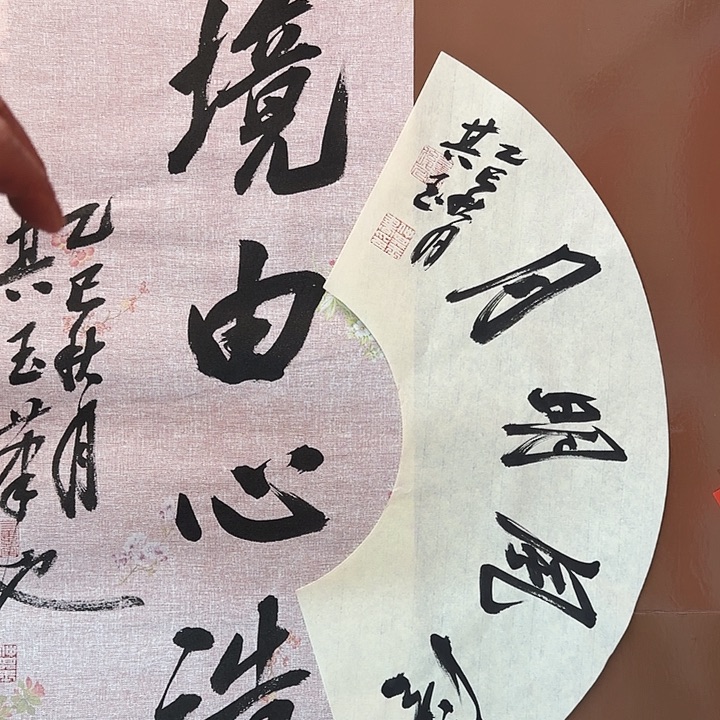 境由心造
乙巳秋月
其玉
清風明月
乙巳秋月
其玉